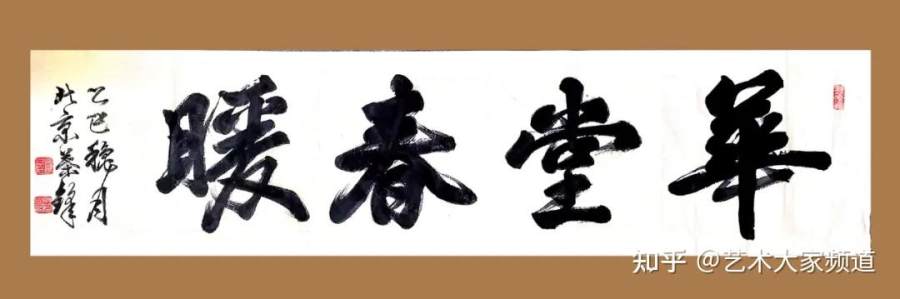 華堂春暖
乙巳穐月
北京
知乎 @艺术大家频道